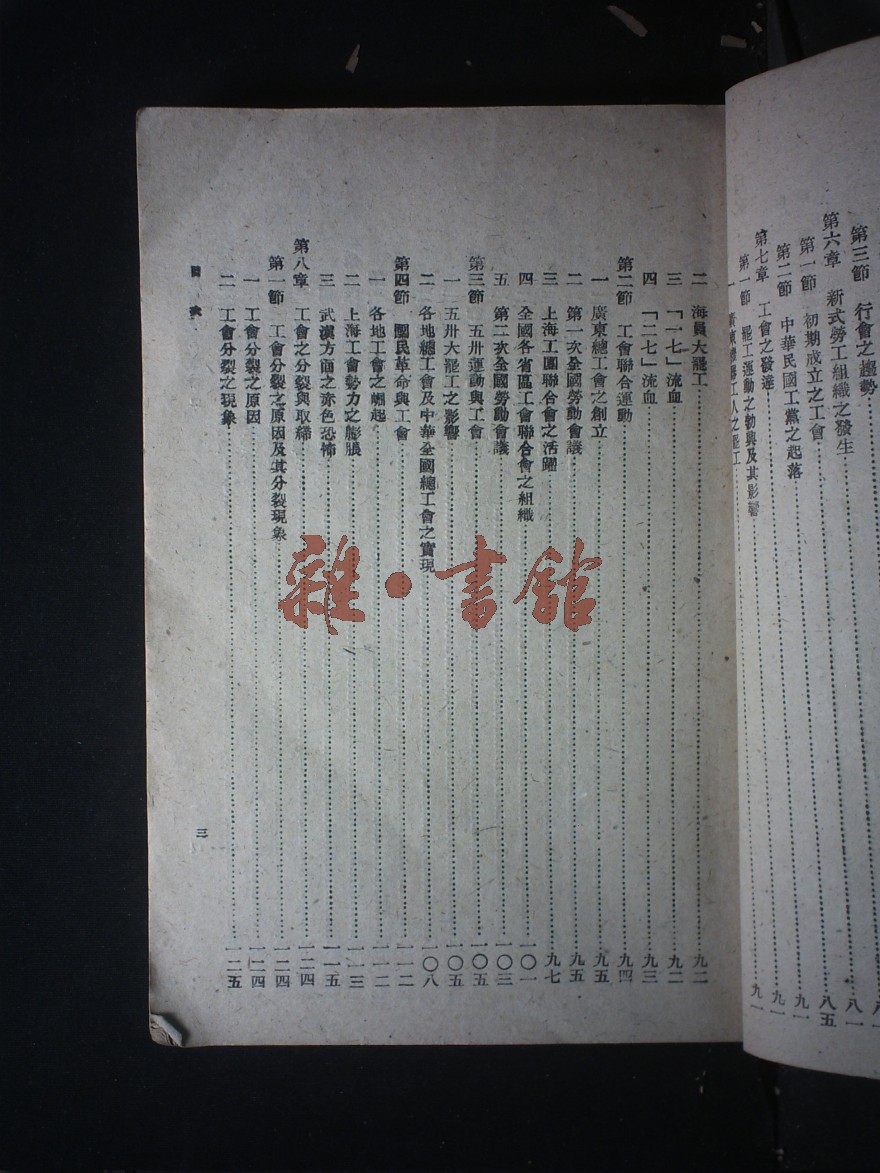 第三節 行會之趨勢 八一
第六章 新式勞工組織之發生 八五
第一節 初期成立之工會
第二節 中華民國工黨之起落 九一
第七章 工會之發達
第一節 罷工運動之勃興及其影響 九一
一
二 海員大罷工 九二
三 「一七」流血 九二
四 「二七」流血 九三
第二節 工會聯合運動 九四
一 廣東總工會之創立 九五
二 第一次全國勞動會議 九五
三 上海工團聯合會之活躍 九七
四 全國各省區工會聯合會之組織 一〇一
五 第二次全國勞動會議 一〇三
第三節 五卅運動與工會 一〇五
一 五卅大罷工之影響 一〇五
二 各地總工會及中華全國總工會之實現 一〇八
第四節 國民革命與工會 一一二
一 各地工會之崛起 一一二
二 上海工會勢力之膨脹 一一三
三 武漢方面之赤色恐怖 一一五
第八章 工會之分裂與取締 一二四
第一節 工會分裂之原因及其分裂現象 一二四
一 工會分裂之原因 一二四
二 工會分裂之現象 一二五
目次 三
雜·書館